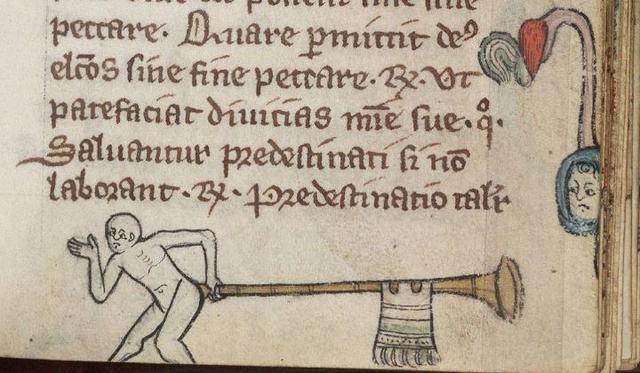 peccare. Quare ꝑmittit deꝰ
elc̄os sine fine peccare. R̸. Vt
patefaciat diuicias mīe sue. qͦ.
Saluantur predestinati si nō
laborant. R̸. Predestinatio talr̄